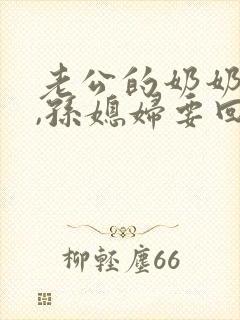 老公的奶奶
,孫媳婦要回
柳輕塵66